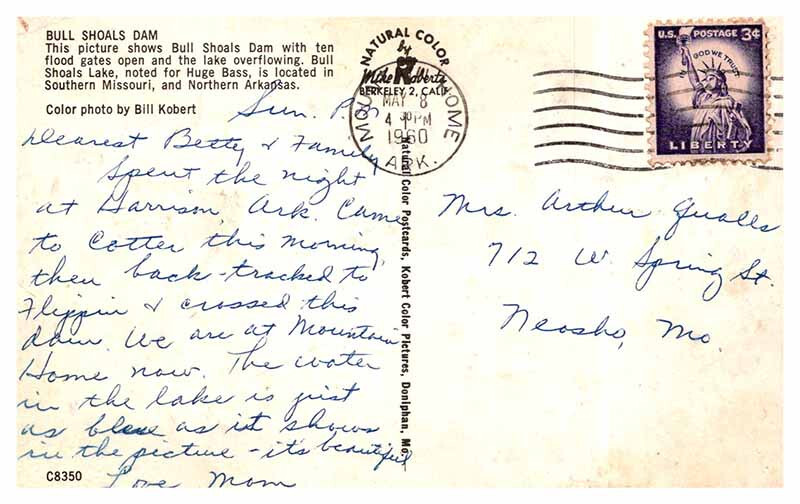 BULL SHOALS DAM
This picture shows Bull Shoals Dam with ten
flood gates open and the lake overflowing. Bull
Shoals Lake, noted for Huge Bass, is located in
Southern Missouri, and Northern Arkansas.
Color photo by Bill Kobert
Sun. P.M.
Dearest Betty & Family
Spent the night
at Harrison, Ark. Came
to Cotter this morning,
then back-tracked to
Flippin & crossed this
dam. We are at Mountain
Home now. The water
in the lake is just
as blue as it shows
in the picture - it's beautiful
Love Mom
C8350
NATURAL COLOR
by
Mike Roberts
BERKELEY 2, CALIF.
Natural Color Postcards, Kobert Color Pictures, Doniphan, Mo.
MOU HOME
MAY 8
4 30 PM
1960
ARK.
U.S. POSTAGE 3¢
IN GOD WE TRUST
LIBERTY
Mrs. Arthur Qualls
712 W. Spring St.
Neosho, Mo